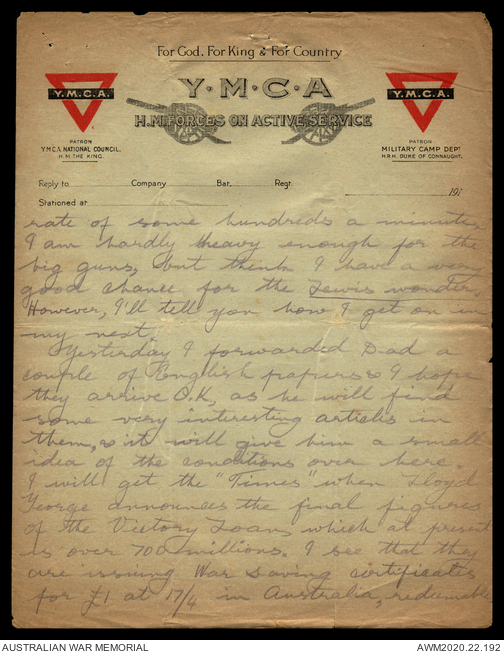 For God. For King & For Country
Y·M·C·A
H.M. FORCES ON ACTIVE SERVICE
Y.M.C.A.
PATRON
Y.M.C.A. NATIONAL COUNCIL.
H.M. THE KING.
Y.M.C.A.
PATRON
MILITARY CAMP DEPT
H.R.H. DUKE OF CONNAUGHT.
Reply to Company Bat. Regt. 191
Stationed at
rate of some hundreds a minute,
I am hardly heavy enough for the
big guns, but think I have a very
good chance for the Lewis wonder.
However, I'll tell you how I get on in
my next.
Yesterday I forwarded Dad a
couple of English papers & I hope
they arrive O.K, as he will find
some very interesting articles in
them, & it will give him a small
idea of the conditions over here.
I will get the "Times" when Lloyd
George announces the final figures
of the Victory Loan, which at present
is over 700 millions. I see that they
are issuing War Saving certificates
for £1 at 17/4 in Australia, redeemable
AUSTRALIAN WAR MEMORIAL
AWM2020.22.192